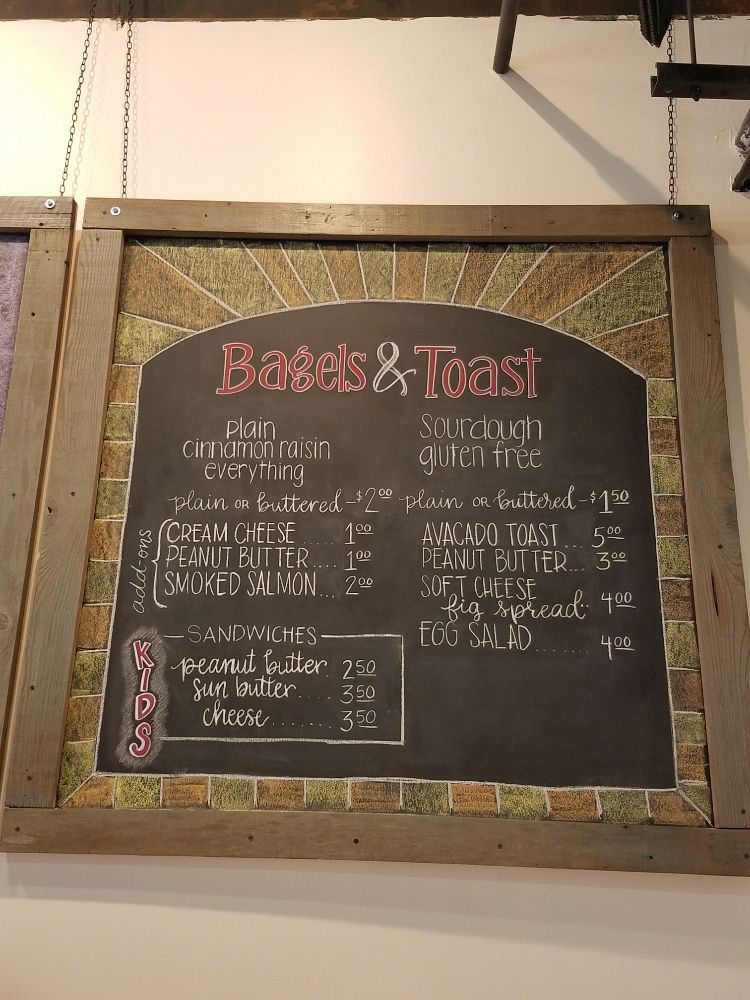 Bagels & Toast
plain
cinnamon raisin
everything
plain OR buttered - $2.00
add-ons
CREAM CHEESE ..... 1.00
PEANUT BUTTER .... 1.00
SMOKED SALMON.... 2.00
KIDS
SANDWICHES
peanut butter.. 2.50
sun butter..... 3.50
cheese........ 3.50
Sourdough
gluten free
plain OR buttered - $1.50
AVACADO TOAST... 5.00
PEANUT BUTTER... 3.00
SOFT CHEESE
fig spread.. 4.00
EGG SALAD ....... 4.00